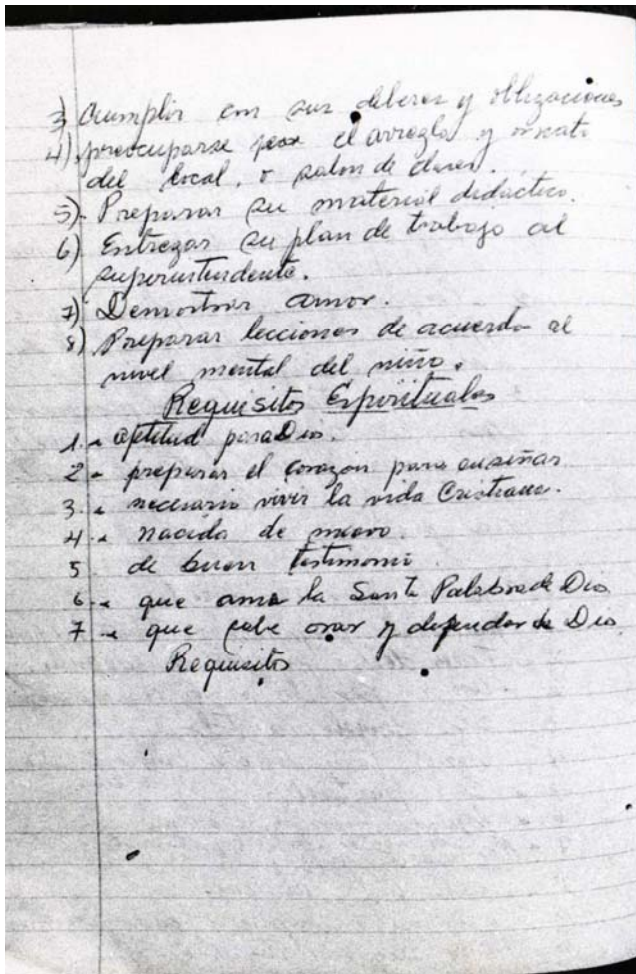 3) Cumplir con sus deberes y obligaciones
4) preocuparse por el arreglo y ornato
del local, o salon de clases.
5)- Preparar su material didactico.
6) Entregar su plan de trabajo al
superintendente.
7) Demostrar amor.
8) Preparar lecciones de acuerdo al
nivel mental del niño.
Requisitos Espirituales
1.- aptitud para Dios.
2- preparar el corazon para enseñar
3.- necesario vivir la vida Cristiana.
4.- nacido de nuevo.
5. de buen testimonio
6.- que ama la Santa Palabra de Dios
7.- que sabe orar y depender de Dios.
Requisitos